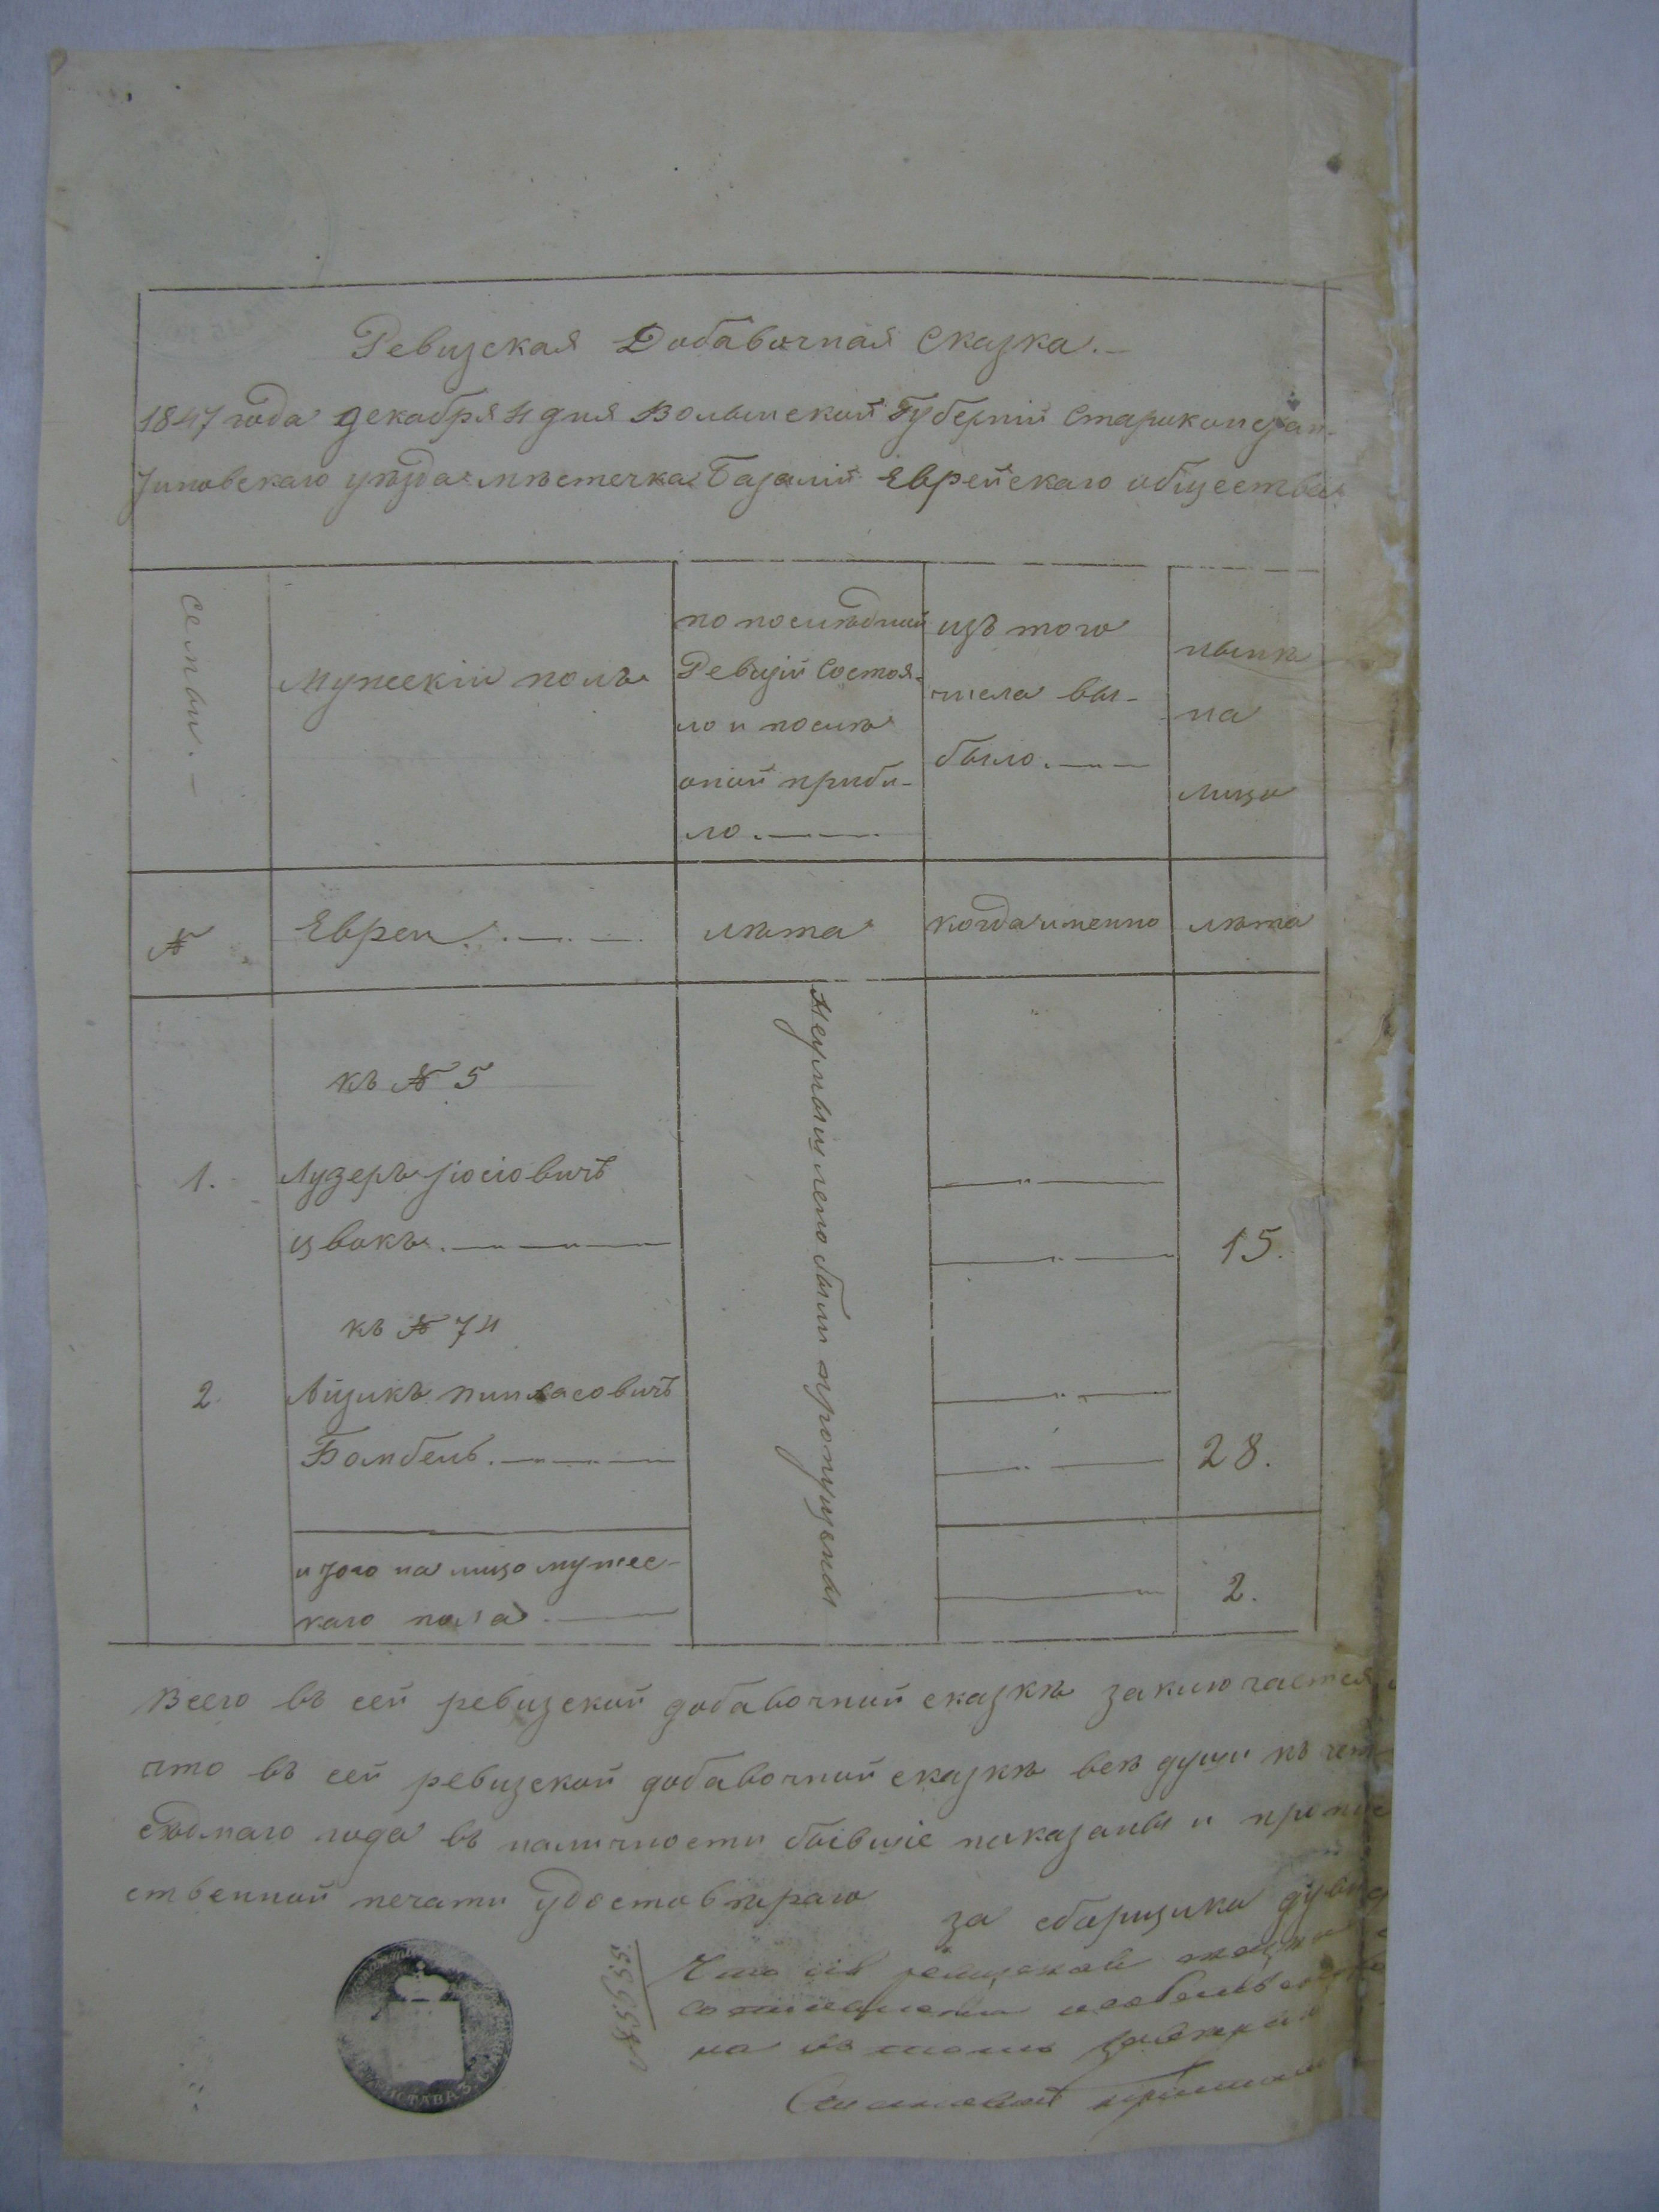 Ревизская Добавочная Сказка.—
1847 года Декабря 4 дня Волынской Губерніи Староконстан-
тиновскаго уѣзда мѣстечка Базаліи Еврейскаго общества
Семьи.—
Мужескій полъ
по послѣдней
Ревизіи состоя-
ло и послѣ
оной прибы-
ло.—
изъ того
числа вы-
было.—
нынѣ
на
лицо
№
Евреи.—
лѣта
когда именно
лѣта
неумышлено были пропущены
къ № 5
1. Лузеръ Іосіовичъ
Цвокъ.— 15.
къ № 74
2. Айзикъ Пинхасовичъ
Бомбель.— 28.
итого на лицо мужес-
каго пола 2.
Всего въ сей ревизской добавочной сказкѣ заключается
что въ сей ревизской добавочной сказкѣ всѣ души къ
седмаго года въ наличности бывшіе показаны и
ственной печати удостовѣряю
за сборщика
Что сія ревизская сказка
на въ томъ
Становой приставъ